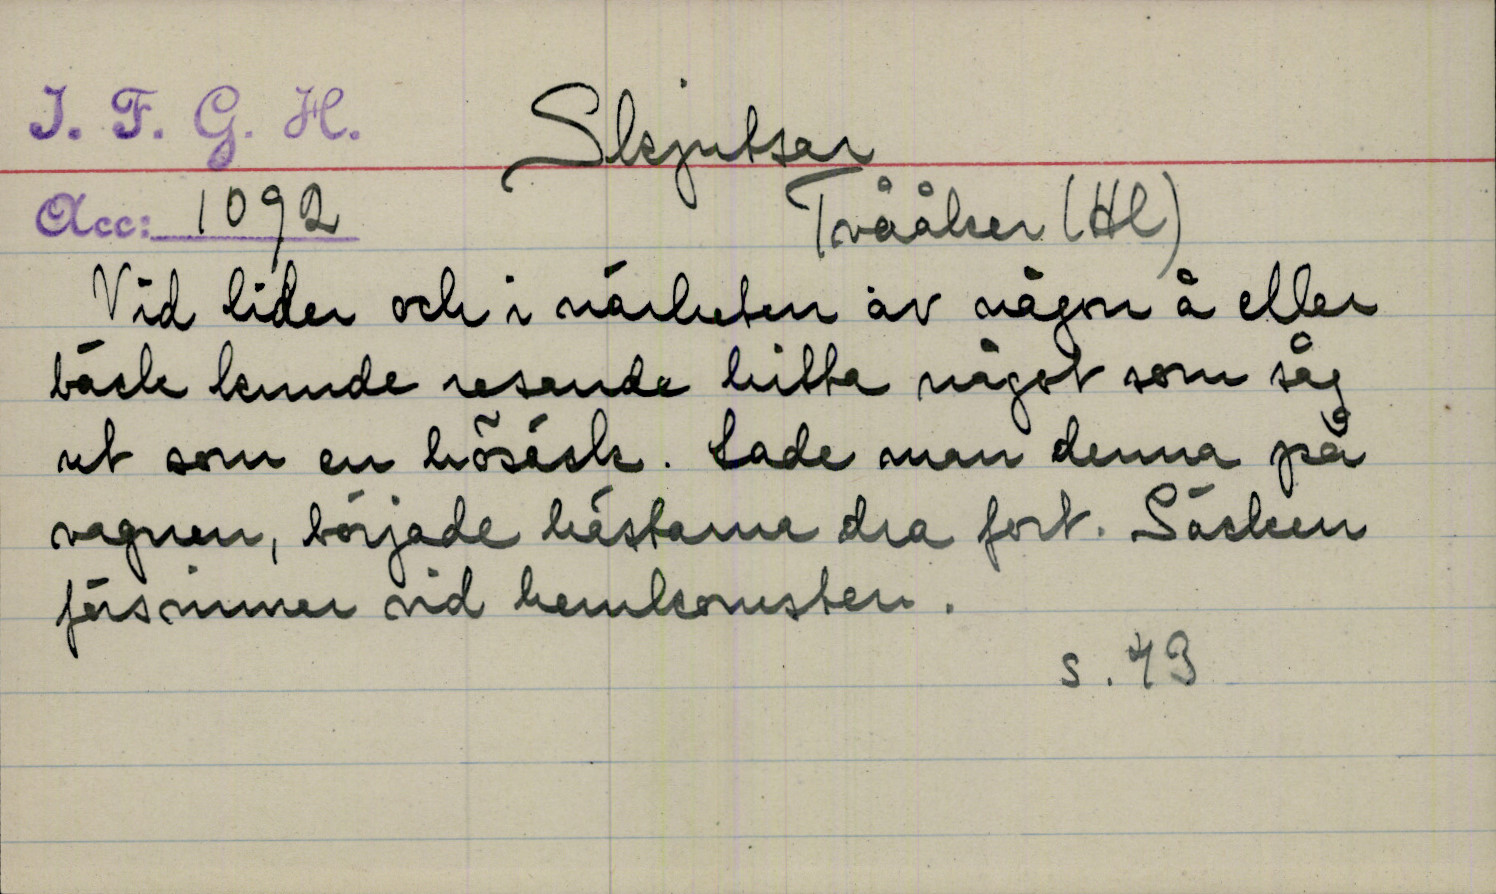 I. F. G. H.
Skjutsar
Acc: 1092
Tvååker (Hl)
Vid lider och i närheten av någon å eller
bäck kunde resande hitta något som såg
ut som en hösäck. Lade man denna på
vagnen, började hästarna dra fort. Säcken
försvinner vid hemkomsten.
s. 43